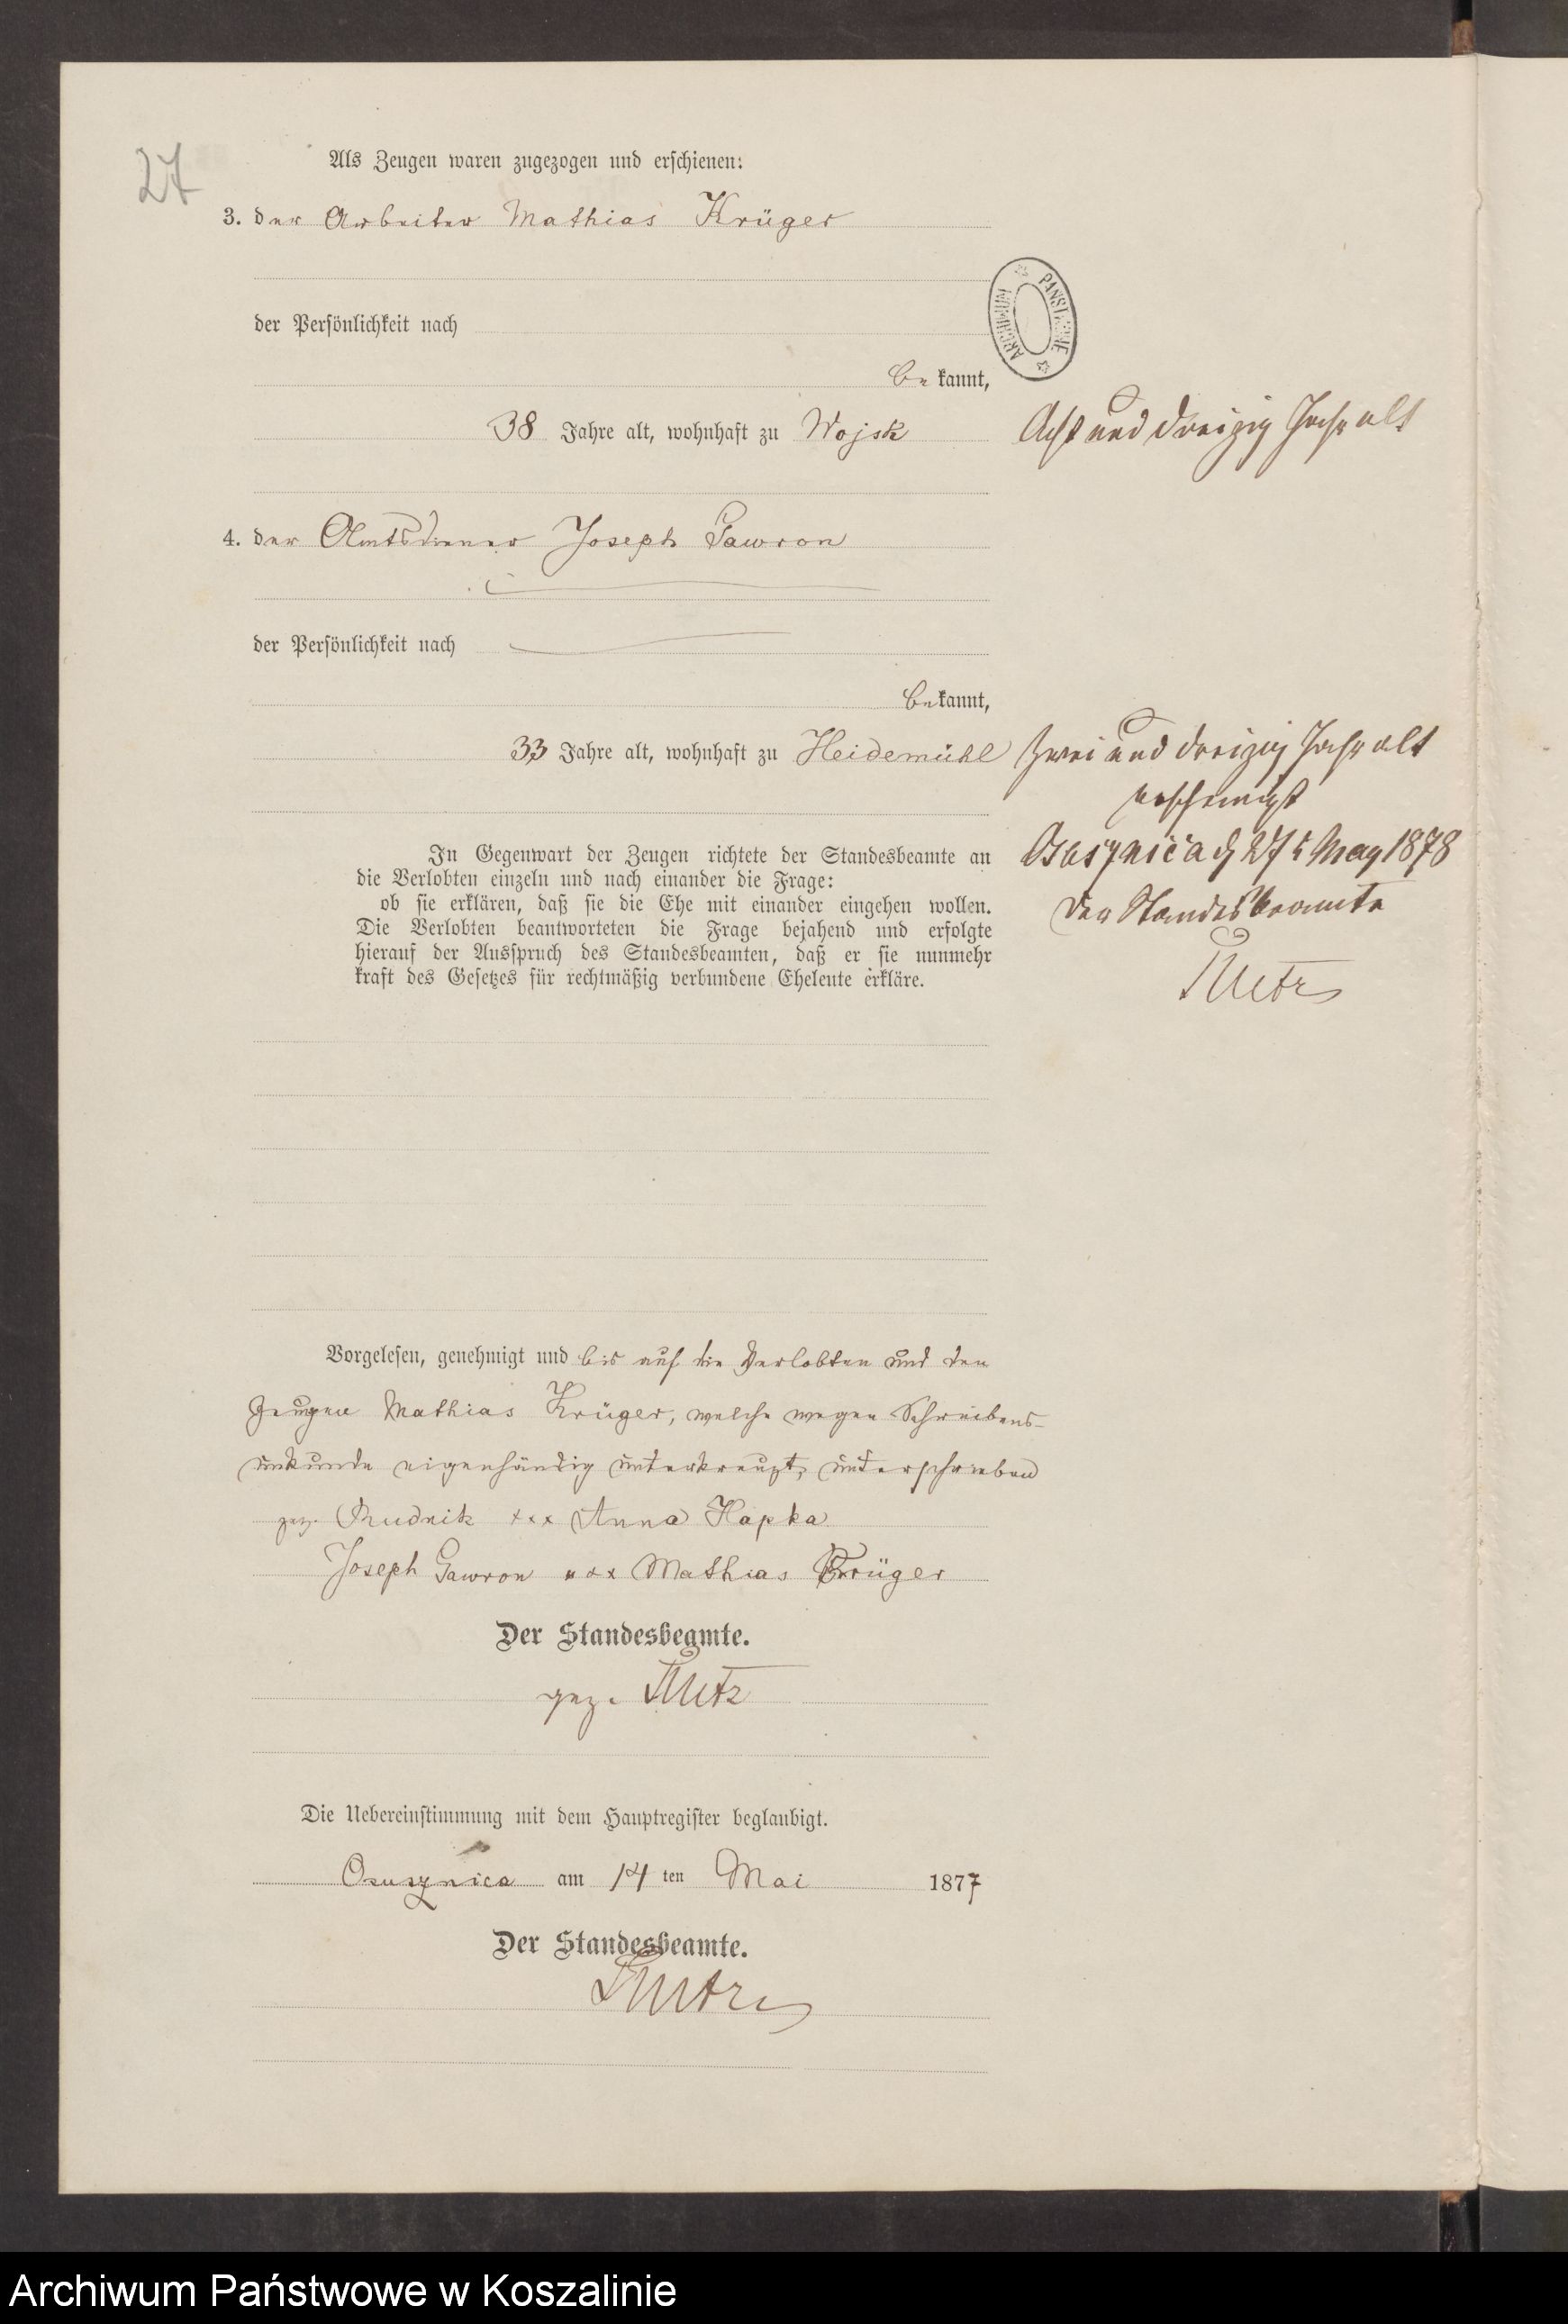 27
Als Zeugen waren zugezogen und erschienen:
3. der Arbeiter Mathias Krüger
der Persönlichkeit nach
bekannt,
38 Jahre alt, wohnhaft zu Wojsk
Acht und dreizig Jahr alt
ARCHIWUM PAŃSTWOWE
4. der Amtsdiener Joseph Gawron
der Persönlichkeit nach
bekannt,
33 Jahre alt, wohnhaft zu Heidemühl
Zwei und dreizig Jahr alt
In Gegenwart der Zeugen richtete der Standesbeamte an
die Verlobten einzeln und nach einander die Frage:
ob sie erklären, daß sie die Ehe mit einander eingehen wollen.
Die Verlobten beantworteten die Frage bejahend und erfolgte
hierauf der Ausspruch des Standesbeamten, daß er sie nunmehr
kraft des Gesetzes für rechtmäßig verbundene Eheleute erkläre.
27 May 1878
Der Standesbeamte
Vorgelesen, genehmigt und bis auf die Verlobten und den
Zeugen Mathias Krüger, welche wegen Schreibens-
unkunde eigenhändig unterkreuzt, unterschrieben
gez. Rudnik xxx Anna Hapka
Joseph Gawron xxx Mathias Krüger
Der Standesbeamte.
gez.
Die Uebereinstimmung mit dem Hauptregister beglaubigt.
Osusznica am 14 ten Mai 1877
Der Standesbeamte.
Archiwum Państwowe w Koszalinie